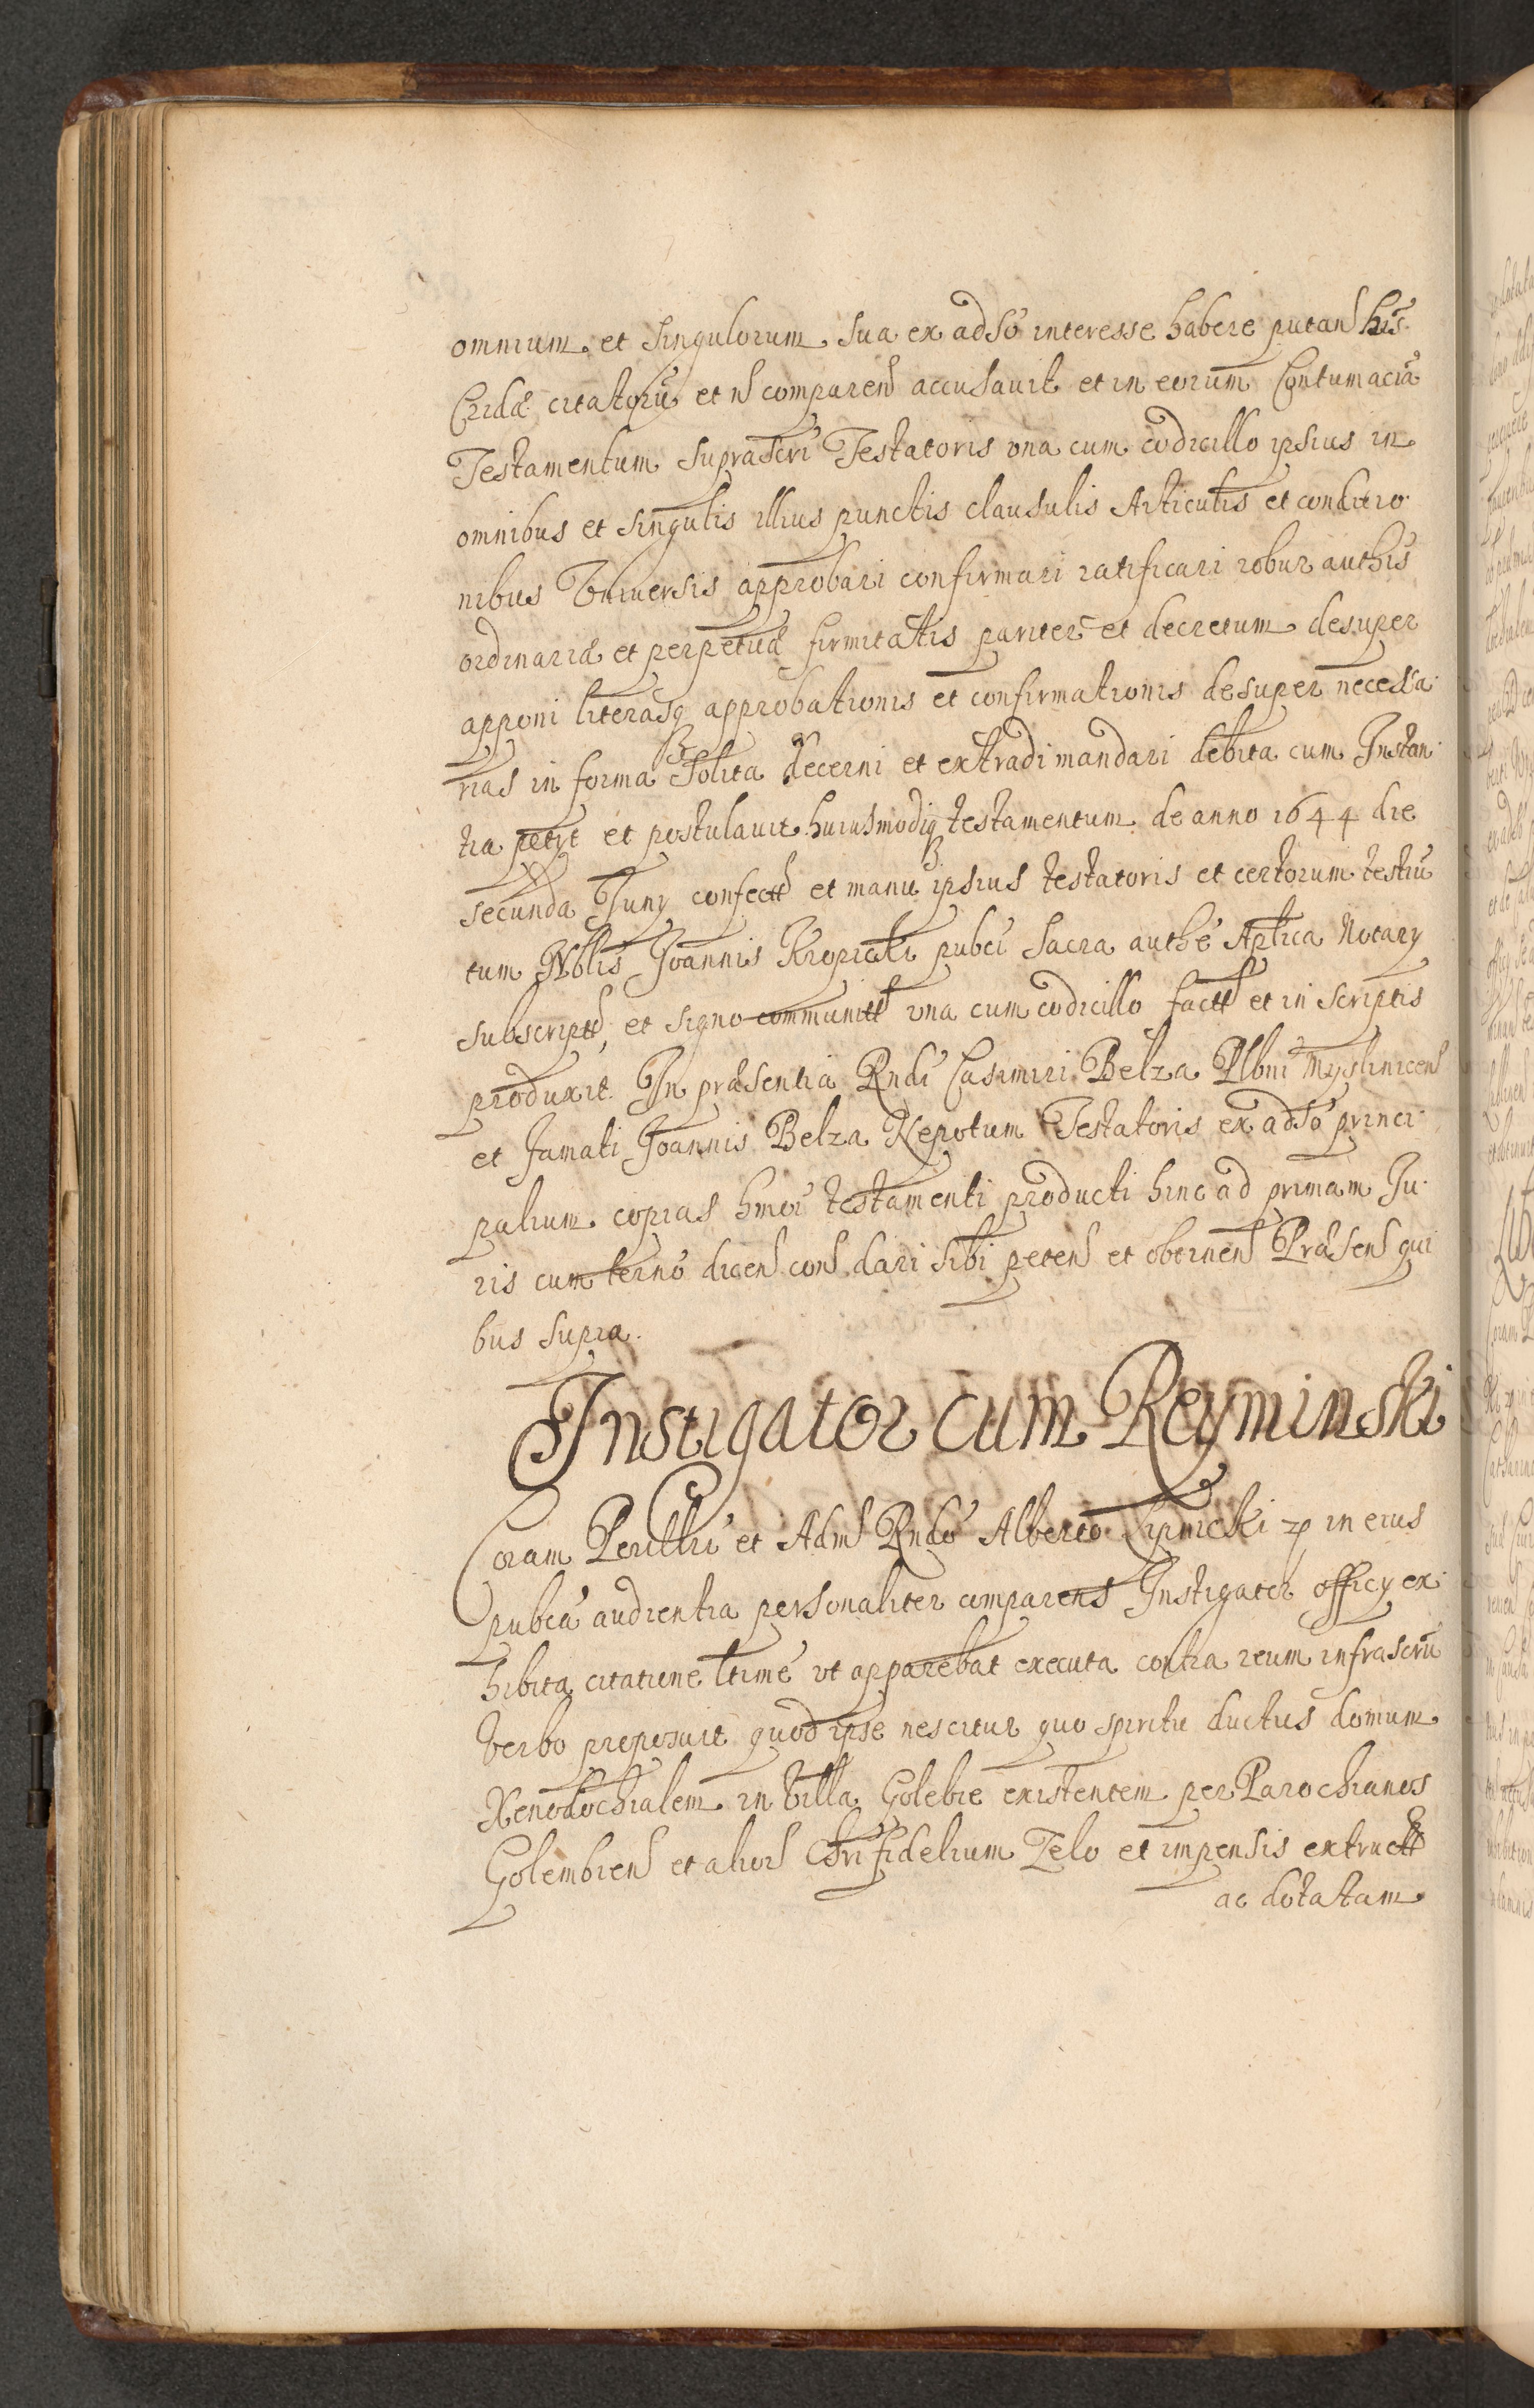 omnium et singulorum sua ex adso interesse habere putan his
Cridæ citatorũ et n comparen accusavit et in eorum Contumaciã
Testamentum suprascri Testatoris una cum codicillo ipsius in
omnibus et singulis illius punctis clausulis Articulis et conditio
nibus Universis approbari confirmari ratificari robur authis
ordinariæ et perpetuæ firmitatis pariter et decretum desuper
apponi literasq approbationis et confirmationis desuper necessa
rias in forma solita decerni et extradi mandari debita cum Instan
tia petyt et postulavit huiusmodiq testamentum de anno 1644 die
secunda Juny confectt et manu ipsius testatoris et certorum testiũ
tum Nblis Joannis Kropicki pubci Sacra authe Aplica Notary
subscriptt, et signo communitt una cum codicillo factt et in scriptis
produxit. In præsentia Rndi Casimiri Belza Plbni Myslinicen
et famati Joannis Belza Nepotum Testatoris ex adso princi
palium copias hmoi testamenti producti hinc ad primam Ju
ris cum terno dicen con dari sibi peten et obtinen Præsen qui
bus supra.
Instigator cum Reyminski
Coram Perillri et Adm Rndo Alberto Lipnicki in eius
pubca audientia personaliter comparens Instigator officy ex
hibita citatione ltime ut apparebat executa contra reum infrascrũ
verbo proposuit quod ipse nescitur quo spiritu ductus domum
Xenodochialem in villa Golebie existentem per Parochianos
Golembien et alior Chri fidelium Zelo et impensis extructt
ac dotatam